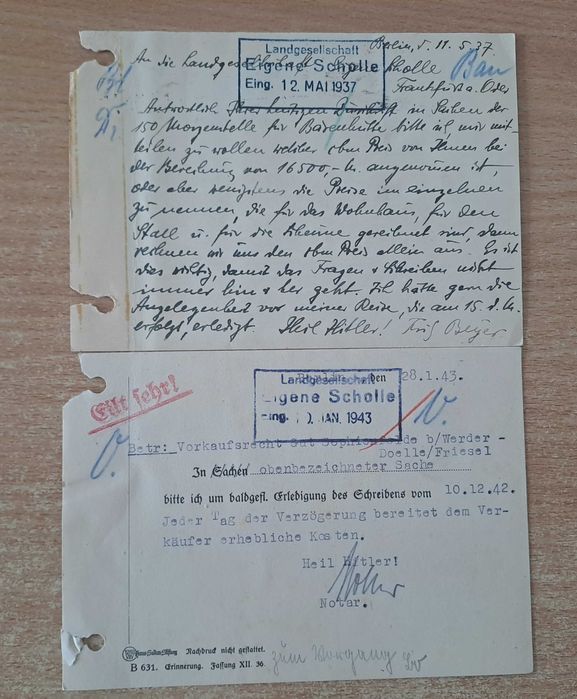 Berlin, d. 11.5.37.
An die Landgesellschaft Eigene Scholle
Bau
Frankfurt a. Oder
Landgesellschaft
Eigene Scholle
Eing. 12. MAI 1937
Antwortlich Ihrer heutigen Zuschrift in Sachen der
150 Morgenstelle für Bärenhütte bitte ich, mir mit-
teilen zu wollen welcher cbm Preis von Ihnen bei
der Berechnung von 16500,- M. angewiesen ist,
oder aber wenigstens die Preise im einzelnen
zu nennen, die für das Wohnhaus, für den
Stall u. für die Scheune gerechnet sind, dann
rechnen wir uns den cbm Preis allein aus. Es ist
dies wichtig, damit das Fragen & Schreiben nicht
immer hin & her geht. Ich hätte gern die
Angelegenheit vor meiner Reise, die am 15. d. M.
erfolgt, erledigt. Heil Hitler! Beyer
Eilt sehr!
Berlin, den 28.1.43.
Landgesellschaft
Eigene Scholle
Eing. JAN. 1943
Betr: Vorkaufsrecht Gut b/Werder -
Doelle/Friesel
In Sachen obenbezeichneter Sache
bitte ich um baldgefl. Erledigung des Schreibens vom 10.12.42.
Jeder Tag der Verzögerung bereitet dem Ver-
käufer erhebliche Kosten.
Heil Hitler!
Notar.
Nachdruck nicht gestattet.
B 631. Erinnerung. Fassung XII. 36.
zum Vorgang